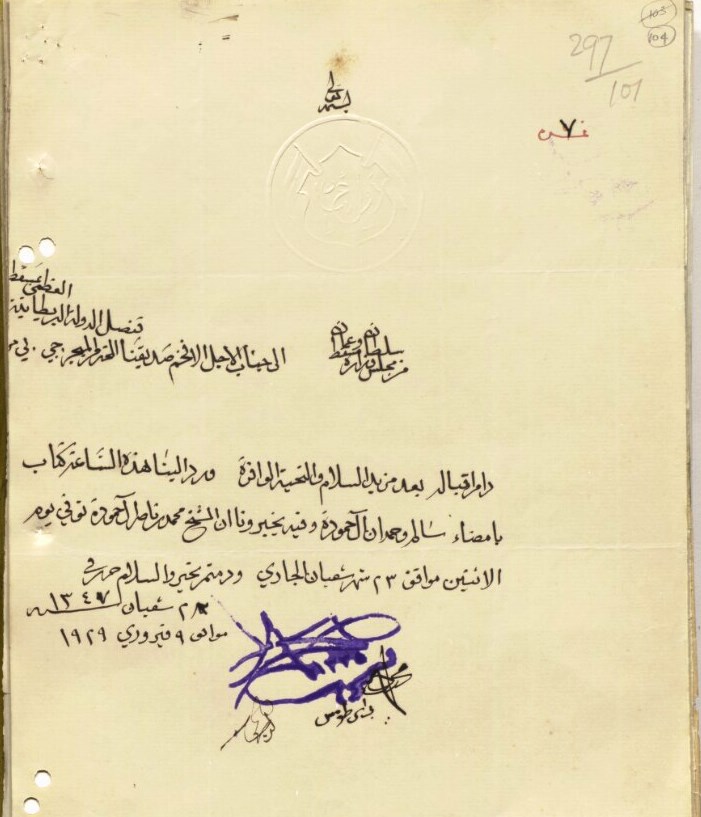 103
104
297
101
بسمه تعالى
نمبر ٧
من مجلس وزارة
سلطان مسقط وعمان
الى جناب الاجل الافخم صديقنا العزيز الميجر جي . بي
قنصل الدولة البريطانية
العظمى بمسقط
دام اقباله بعد مزيد السلام والتحية الوافرة ورد الينا هذه الساعة كتاب
بامضاء سالم وحمدان آل حمودة وفيه يخبرونا ان الشيخ محمد بن ناصر آل حمودة توفي يوم
الاثنين موافق ٢٣ شهر شعبان الجاري ودمتم بخير والسلام حرر في
٢٨ شعبان سنه ١٣٤٧
موافق ٩ فبروري ١٩٢٩